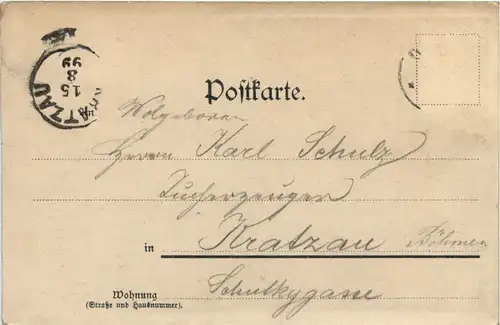 ATZAU
15
8
99
Postkarte.
Wolgeboren
Herrn Karl Schulz
Tucherzeuger
in Kratzau Böhmen
Wohnung
(Straße und Hausnummer).